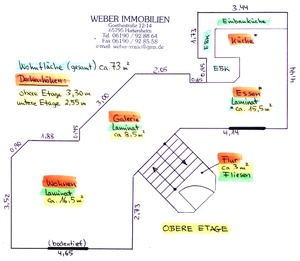 WEBER IMMOBILIEN
Goethestraße 12-14
65795 Hattersheim
Fon 06190 / 92 88 64
Fax 06190 / 92 85 58
Wohnfläche (gesamt) ca. 73 m²
Deckenhöhen:
obere Etage 3,30 m
untere Etage 2,55 m
3,44
Einbauküche
1,73
EBK
Küche*
EBK
0,85
2,05
3,00
4,94
Essen*
Laminat
ca. 15,5 m²
Galerie
Laminat
ca. 8,5 m²
4,14
1,88
0,90
3,52
Wohnen
Laminat
ca. 16,5 m²
2,73
Flur
ca. 3 m²
Fliesen
OBERE ETAGE
(bodentief)
4,65